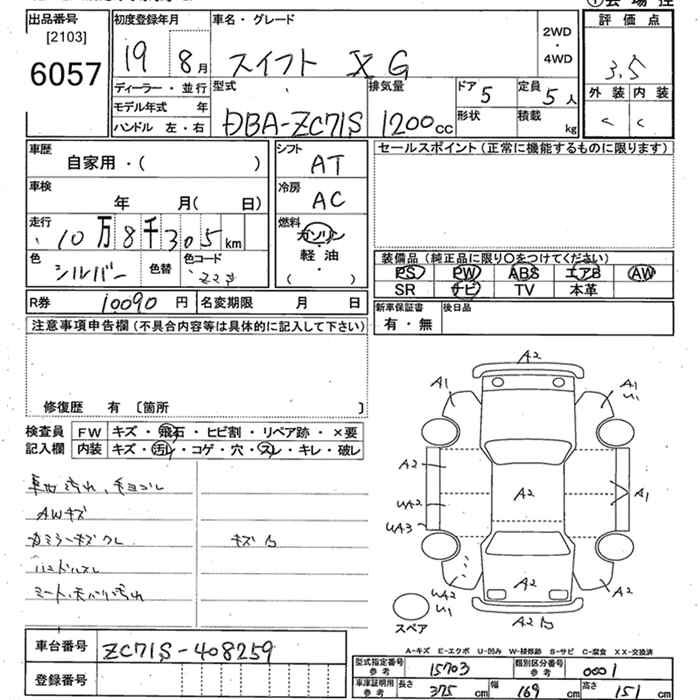 出品番号
[2103]
6057
初度登録年月
19 8月
車名・グレード
スイフト XG
2WD
・
4WD
評価点
3.5
外装 内装
C C
ディーラー・並行
モデル年式 年
ハンドル 左・右
型式
DBA-ZC71S
排気量
1200cc
ドア 5
形状
定員 5人
積載
kg
車歴
自家用・( )
車検
年 月( 日)
走行
10万8千305km
色
シルバー
色替
色コード
シフト
AT
冷房
AC
燃料
ガソリン
・
軽油
・
( )
セールスポイント(正常に機能するものに限ります)
装備品(純正品に限り○をつけてください)
PS PW ABS エアB AW
SR ナビ TV 本革
R券 10090円 名変期限 月 日
新車保証書
有・無
後日品
注意事項申告欄(不具合内容等は具体的に記入して下さい)
修復歴 有 〔箇所 〕
検査員
記入欄
FW キズ・飛石・ヒビ割・リペア跡・×要
内装 キズ・汚レ・コゲ・穴・スレ・キレ・破レ
AWキズ
A2
A1
A1
U1
A2
UA2
UA3
A2
A1
A2
UA2
U1
A2
A2
スペア
A-キズ E-エクボ U-凹み W-補修跡 S-サビ C-腐食 XX-交換済
車台番号 ZC71S-408259
登録番号
型式指定番号
参考
15703
類別区分番号
参考
0001
車庫証明用
参考
長さ 375cm 幅 169cm 高さ 151cm